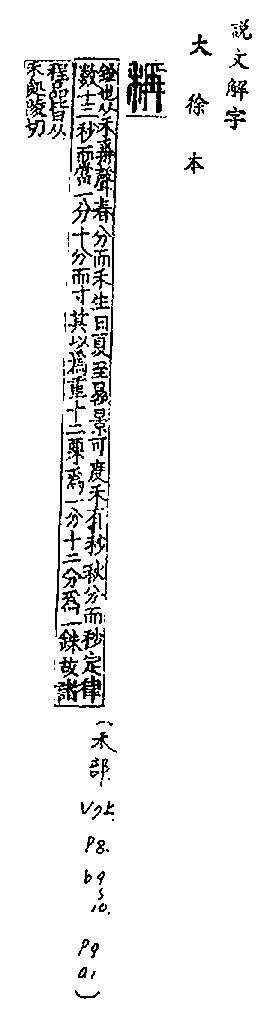 説文解字
大徐本
稱
銓也从禾爯聲春分而禾生日夏至晷景可度禾有秒秋分而秒定律
數十二秒而當一分十分而寸其以為重十二粟為一分十二分為一銖故諸
程品皆从
禾處陵切
(禾部
V7上
P8.
b9
s
10.
P9
a1)